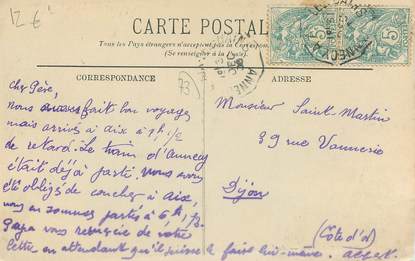 12 €
CARTE POSTALE
Tous les Pays étrangers n'acceptent pas la Correspondance
(Se renseigner à la Poste).
CORRESPONDANCE
ADRESSE
73
cher Père,
nous avons fait bon voyage
mais arrivés à aix à 1h 1/2
de retard. Le train d'Annecy
était déjà parti. nous avons
été obligés de coucher à Aix,
nous en sommes partis à 6h 1/2.
Papa vous remercie de votre
lettre en attendant qu'il puisse le faire lui-même. Albert.
Monsieur Saint-Martin
39 rue Vannerie
Dijon
(Côte d'or)
5
5